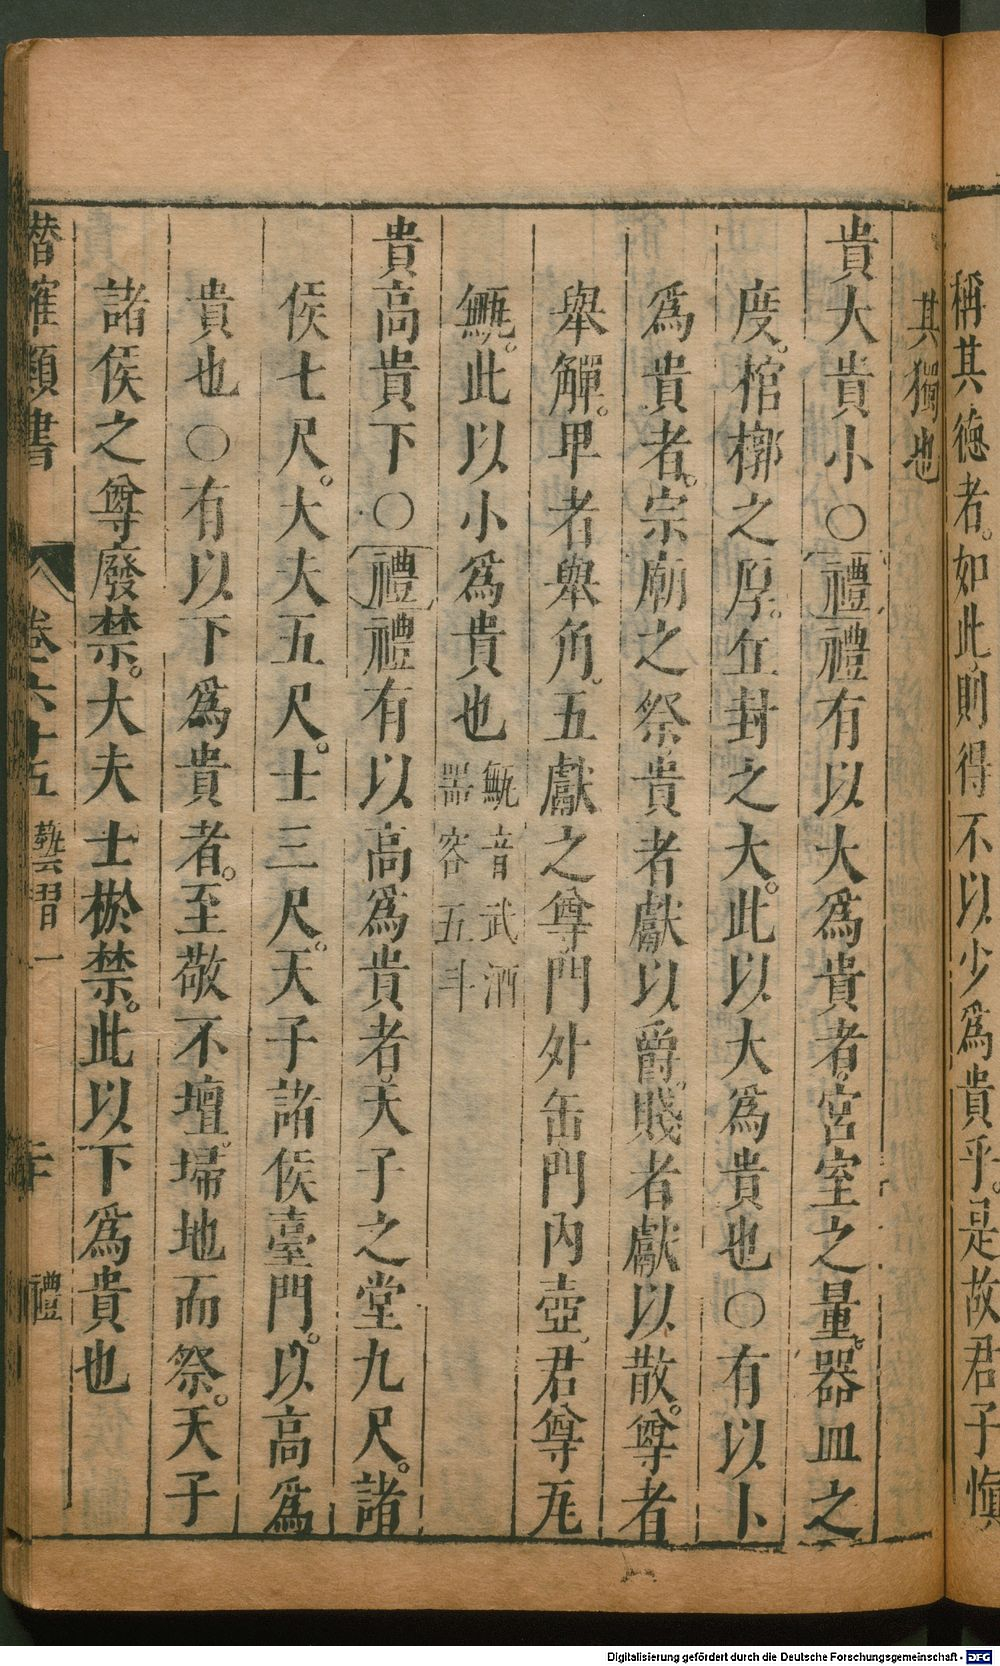 稱其德者。如此則得不以少為貴乎。是故君子愼
其獨也
貴大貴小○禮禮有以大為貴者。宮室之量。器皿之
度。棺槨之厚。丘封之大。此以大為貴也○有以小
為貴者。宗廟之祭。貴者獻以爵。賤者獻以散。尊者
舉觶。卑者舉角。五獻之尊。門外缶門內壺。君尊瓦
甒。此以小為貴也
甒音武酒
器容五斗
貴高貴下○禮禮有以高為貴者。天子之堂九尺。諸
侯七尺。大夫五尺。士三尺。天子諸侯臺門。以高為
貴也○有以下為貴者。至敬不壇。埽地而祭。天子
諸侯之尊廢禁。大夫士棜禁。此以下為貴也
潛確類書
卷六十五
藝習一
二十
禮
Digitalisierung gefördert durch die Deutsche Forschungsgemeinschaft - DFG